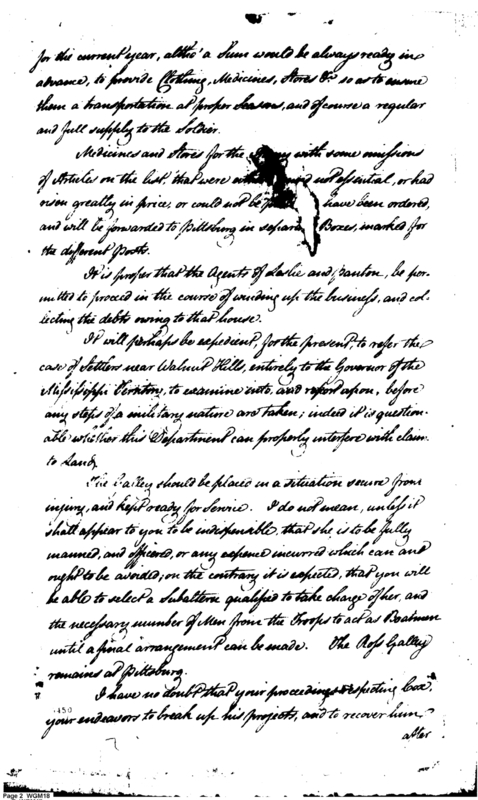 for the current year, altho' a Sum would be always ready in
advance, to provide Clothing, Medicines, Stores &ca so as to ensure
them a transportation at proper Seasons, and of course a regular
and full supply to the Soldier.
Medicines and Stores for the with some omissions
of Articles on the list, that were not essential, or had
risen greatly in price, or could not be have been ordered,
and will be forwarded to Pittsburg in Boxes, marked for
the different Posts.
It is proper that the Agents of Leslie and Panton, be per-
mitted to proceed in the course of winding up the business, and col-
lecting the debts owing to that house.
It will perhaps be expedient, for the present, to refer the
case of Settlers near Walnut Hills, entirely to the Governor of the
Mississippi Territory, to examine into, and report upon, before
any steps of a military nature are taken; indeed it is question-
able whether this Department can properly interfere with claim
to Land.
The Galley should be placed in a situation secure from
injury, and kept ready for Service. I do not mean, unless it
shall appear to you to be indispensable, that she is to be fully
manned, and officered, or any expence incurred which can and
ought to be avoided; on the contrary it is expected, that you will
be able to select a Subaltern qualified to take charge of her, and
the necessary number of Men from the Troops to act as Boatmen
until a final arrangement can be made. The Ross Galley
remains at Pittsburg.
I have no doubt that your proceedings respecting
your endeavors to break up his projects, and to recover him,
450
after
Page 2 WGM18